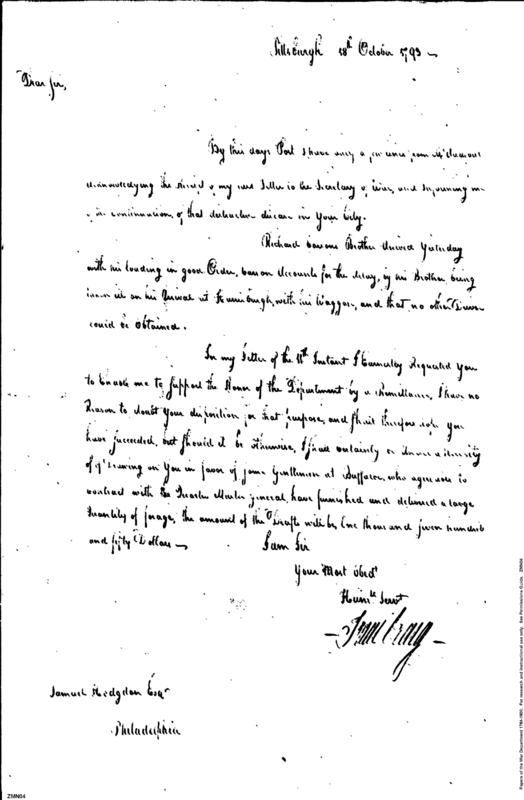 Pittsburgh 18th October 1793
Dear Sir,
By this days Post I have only a
acknowledging the receipt of my last Letter to the Secretary of War, and informing me
continuation of that distructive disease in Your City.
Richard Brother Arrived Yesterday
with his loading in good Order, accounts for the delay, by his Brother being
on his Arrival at with his Waggon, and that no other Driver
could be obtained.
In my Letter of the 11th Instant I Earnestly Requested You
to Enable me to Support the Honor of the Department by a Remittance, I have no
Reason to doubt Your disposition for that purpose, and shall therefore hope You
have succeeded, but should it be otherwise, I shall certainly be under a necessity
of drawing on You in favor of some Gentlemen at who agreeable to
contract with the Quarter Master general, have furnished and delivered a large
Quantity of forage, the amount of the Drafts will be One thousand seven hundred
and fifty Dollars
I am Sir
Your Most Obedt
Humle Servt
Isaac Craig
Samuel Hodgdon Esqr
Philadelphia
ZMN04
Papers of the War Department 1784-1800. For research and instructional use only. See Permissions Guide. ZMN04